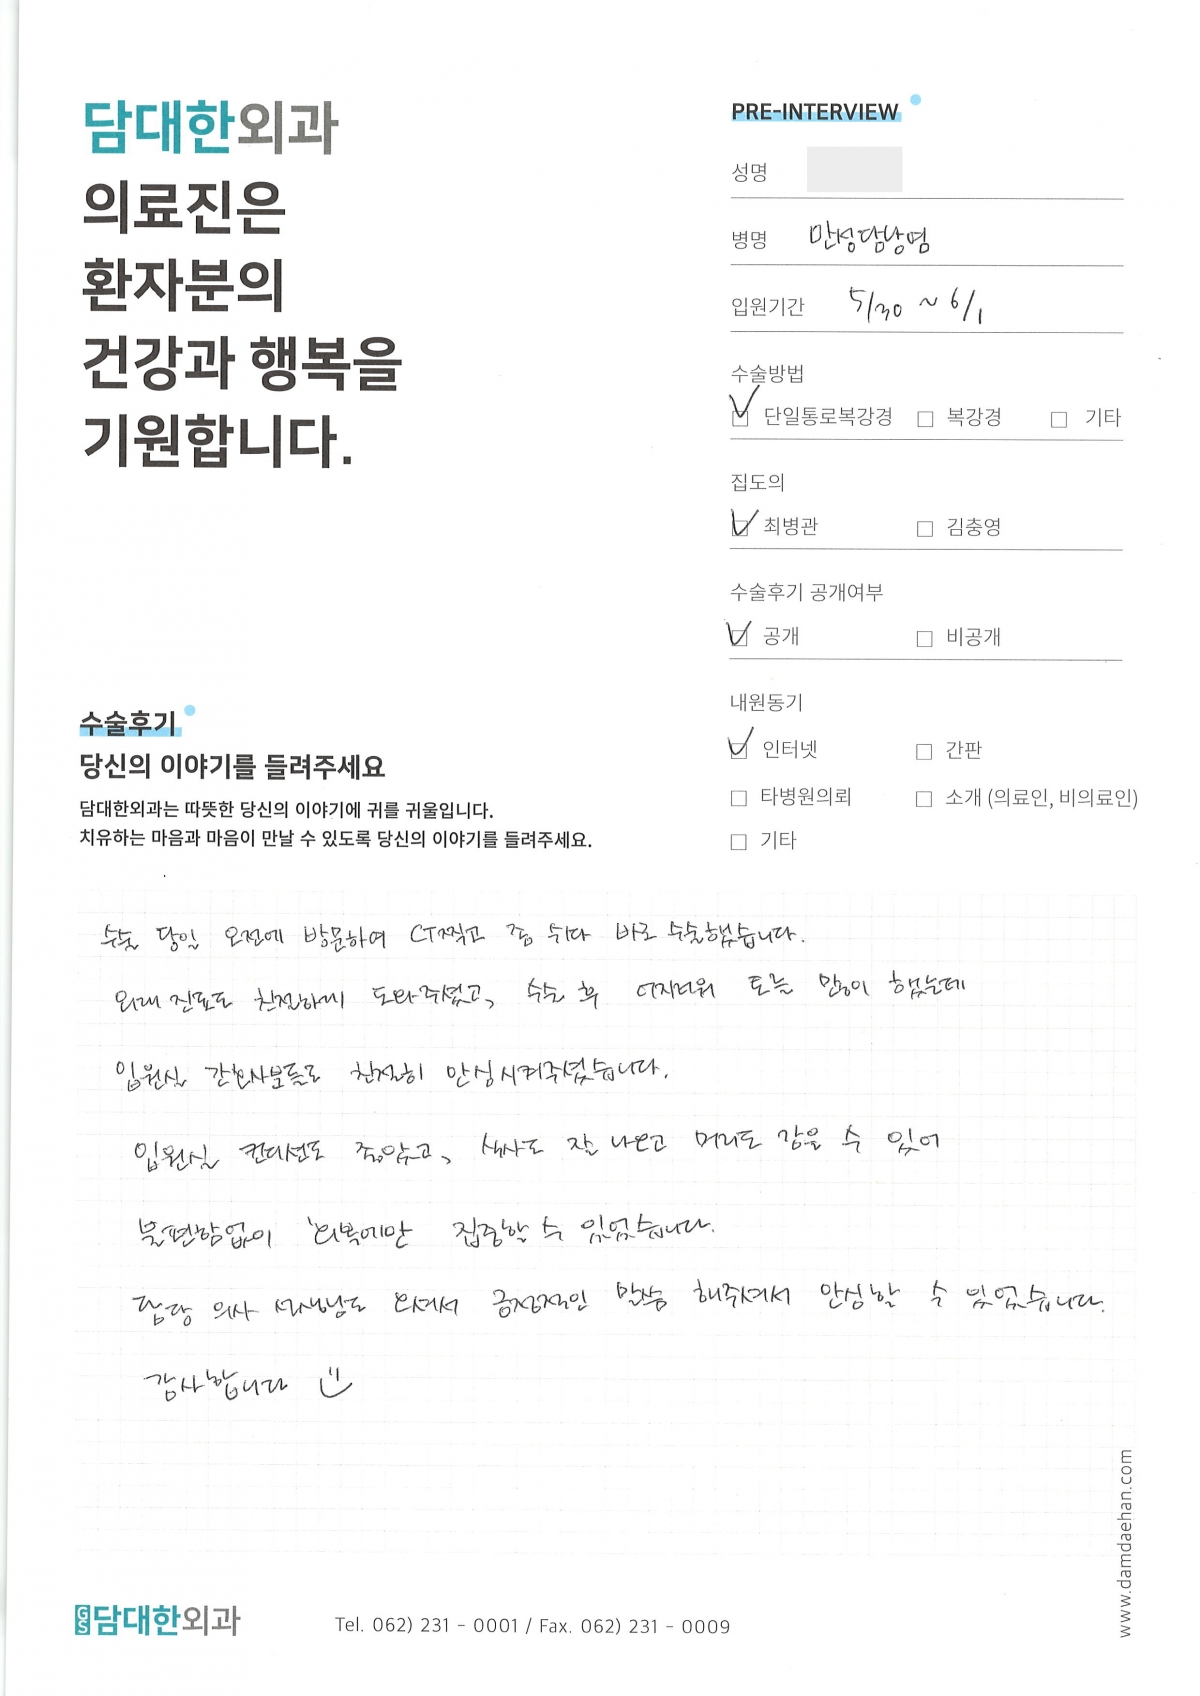 담대한외과
의료진은
환자분의
건강과 행복을
기원합니다.
PRE-INTERVIEW
성명
병명 만성담낭염
입원기간 5/30 ~ 6/1
수술방법
단일통로복강경 복강경 기타
집도의
최병관 김충영
수술후기 공개여부
공개 비공개
내원동기
인터넷 간판
타병원의뢰 소개 (의료인, 비의료인)
기타
수술후기
당신의 이야기를 들려주세요
담대한외과는 따뜻한 당신의 이야기에 귀를 귀울입니다.
치유하는 마음과 마음이 만날 수 있도록 당신의 이야기를 들려주세요.
수술 당일 오전에 방문하여 CT찍고 좀 쉬다 바로 수술했습니다.
외래 진료도 친절하게 도와주셨고, 수술 후 어지러워 토를 많이 했는데
입원실 간호사분들도 친절히 안심시켜주셨습니다.
입원실 컨디션도 좋았고, 식사도 잘 나오고 머리도 감을 수 있어
불편함없이 회복에만 집중할 수 있었습니다.
담당 의사 선생님도 오셔서 긍정적인 말씀 해주셔서 안심할 수 있었습니다.
감사합니다
GS 담대한외과
Tel. 062) 231 - 0001 / Fax. 062) 231 - 0009
www.damdaehan.com